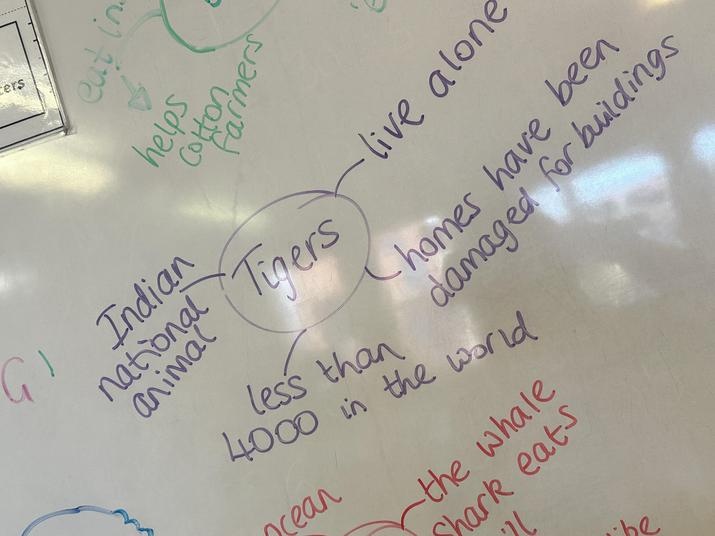 eat in
helps
cotton
farmers
live alone
homes have been
damaged for buildings
Tigers
Indian
national
animal
less than
4000 in the world
the whale
shark eats